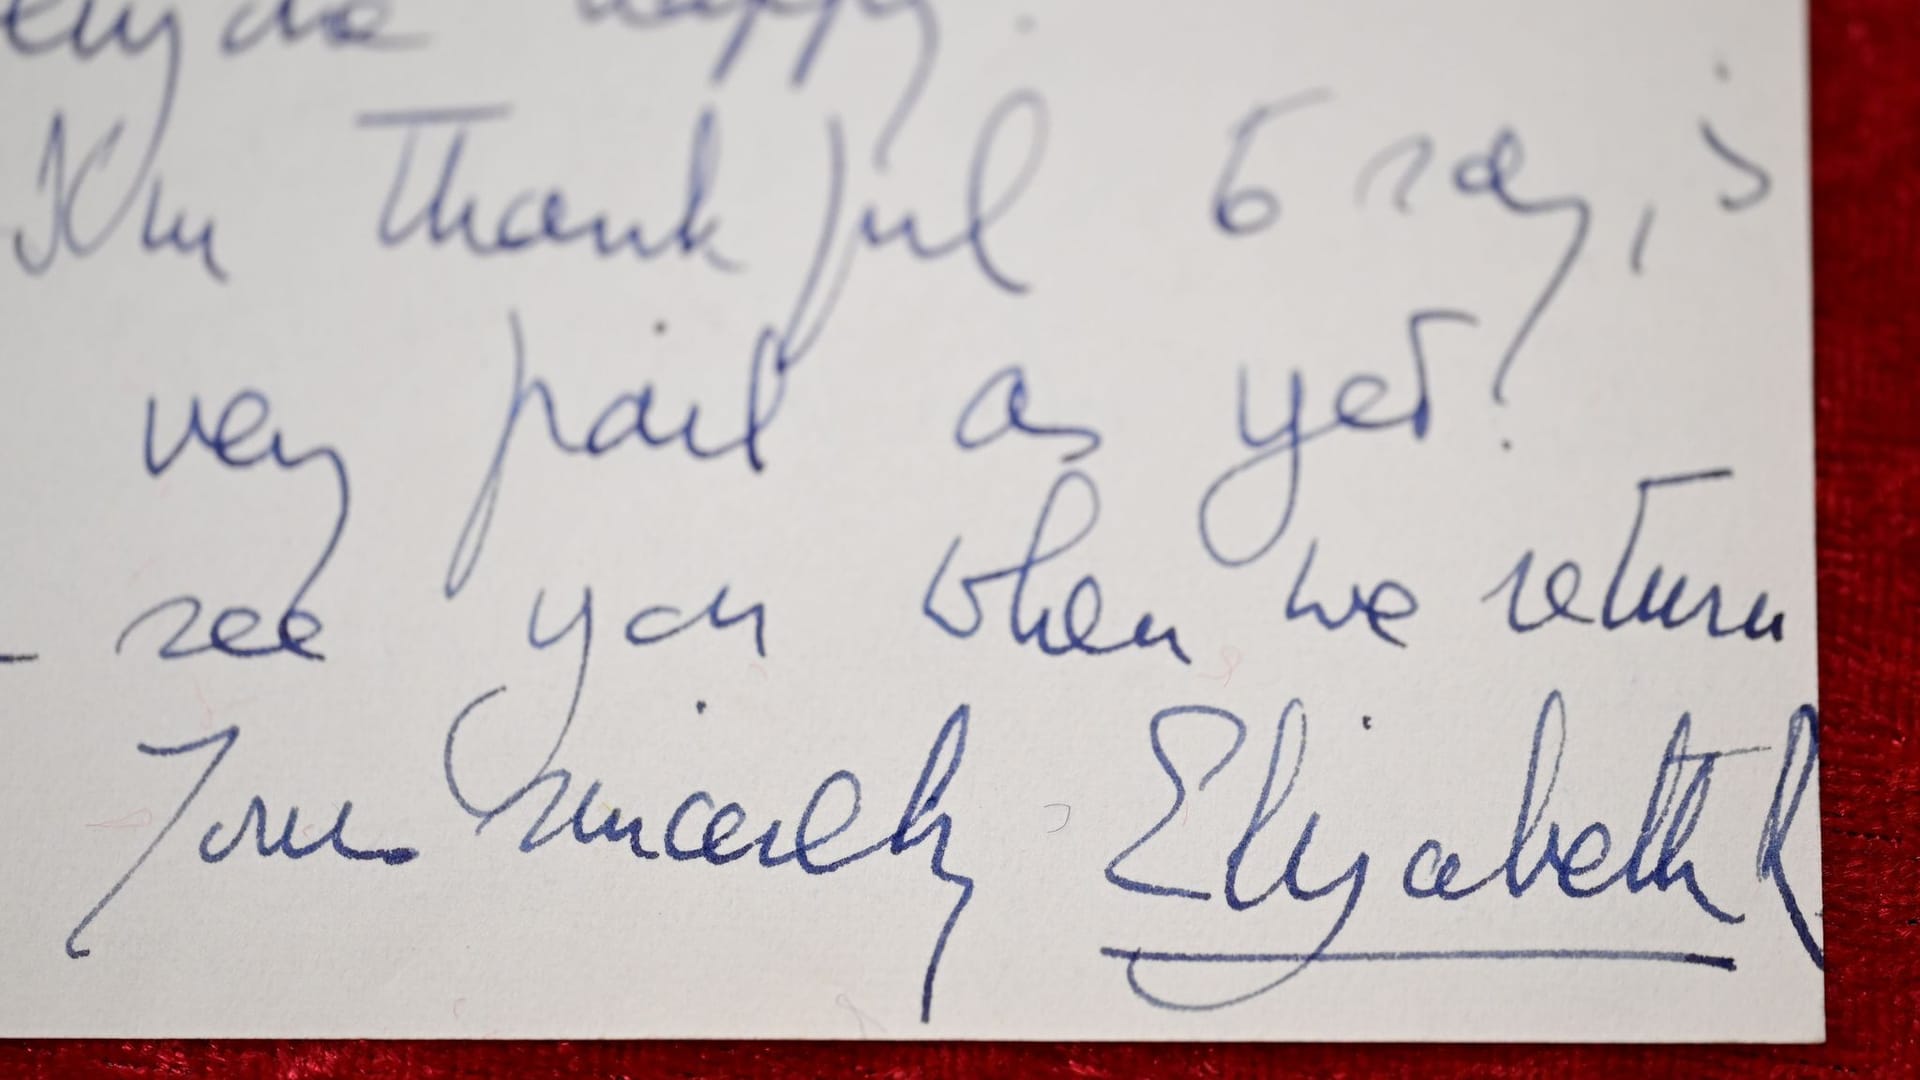 happy.
I'm thankful to say, is
very as yet!
see you when we return
Yours sincerely Elizabeth R